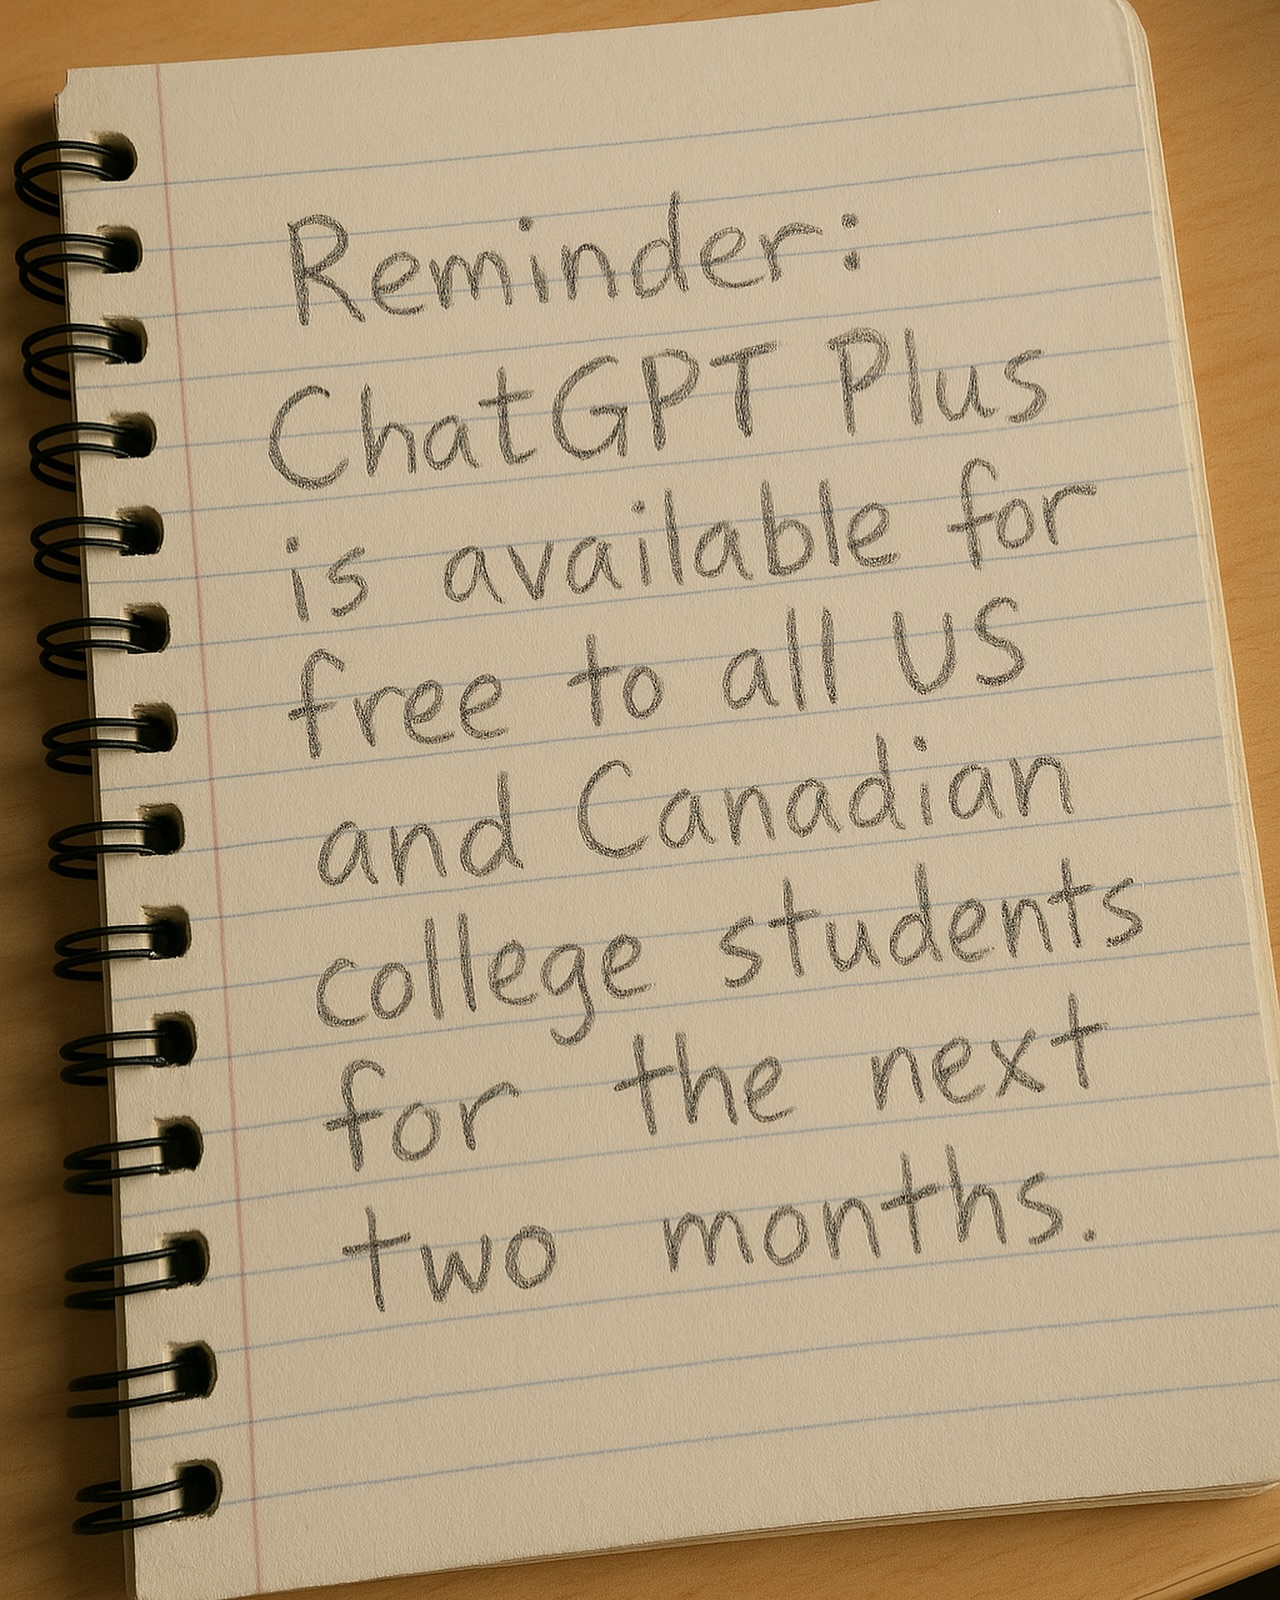 Reminder:
ChatGPT Plus
is available for
free to all US
and Canadian
college students
for the next
two months.